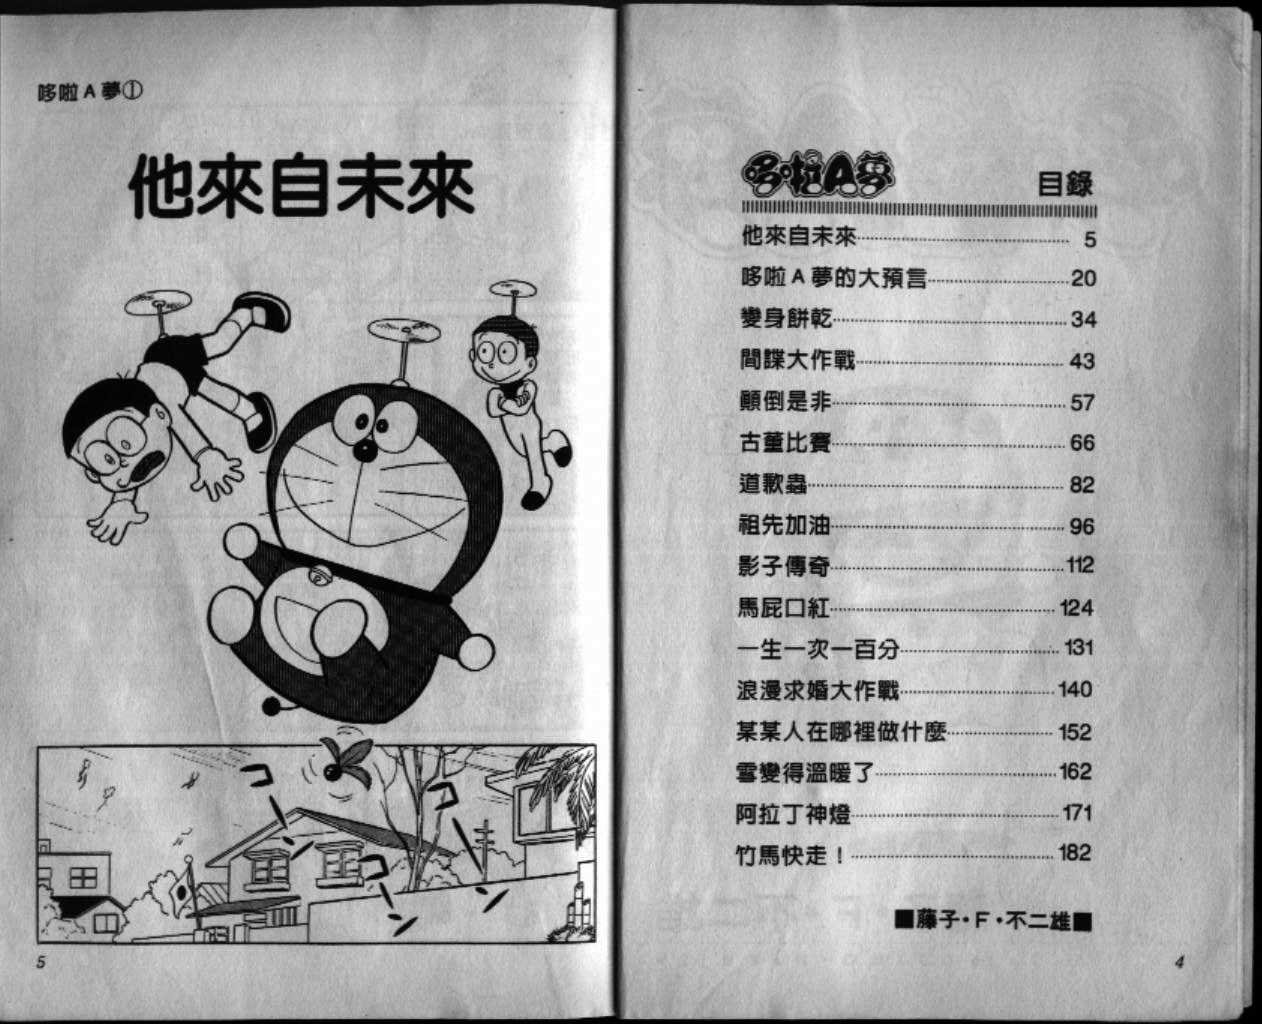 哆啦A夢 目錄
他來自未來 5
哆啦A夢的大預言 20
變身餅乾 34
間諜大作戰 43
顛倒是非 57
古董比賽 66
道歉蟲 82
祖先加油 96
影子傳奇 112
馬屁口紅 124
一生一次一百分 131
浪漫求婚大作戰 140
某某人在哪裡做什麼 152
雪變得溫暖了 162
阿拉丁神燈 171
竹馬快走！ 182
■藤子・F・不二雄■
4
哆啦A夢①
他來自未來
コ
コ
コ
5